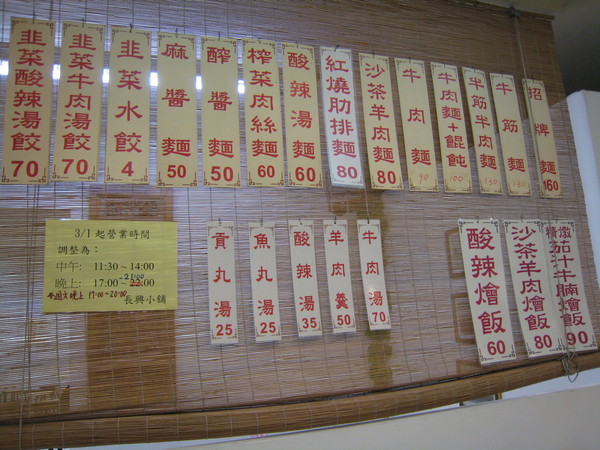 韭菜酸辣湯餃 70
韭菜牛肉湯餃 70
韭菜水餃 4
麻醬麵 50
酢醬麵 50
榨菜肉絲麵 60
酸辣湯麵 60
紅燒肋排麵 80
沙茶羊肉麵 80
牛肉麵 90
牛肉麵+餛飩 100
半筋半肉麵
牛筋麵
招牌麵 160
3/1 起營業時間
調整為：
中午: 11:30~14:00
晚上: 17:00~22:00 21:00
長興小舖
貢丸湯 25
魚丸湯 25
酸辣湯 35
羊肉羹 50
牛肉湯 70
酸辣燴飯 60
沙茶羊肉燴飯 80
精燉茄汁牛腩燴飯 90